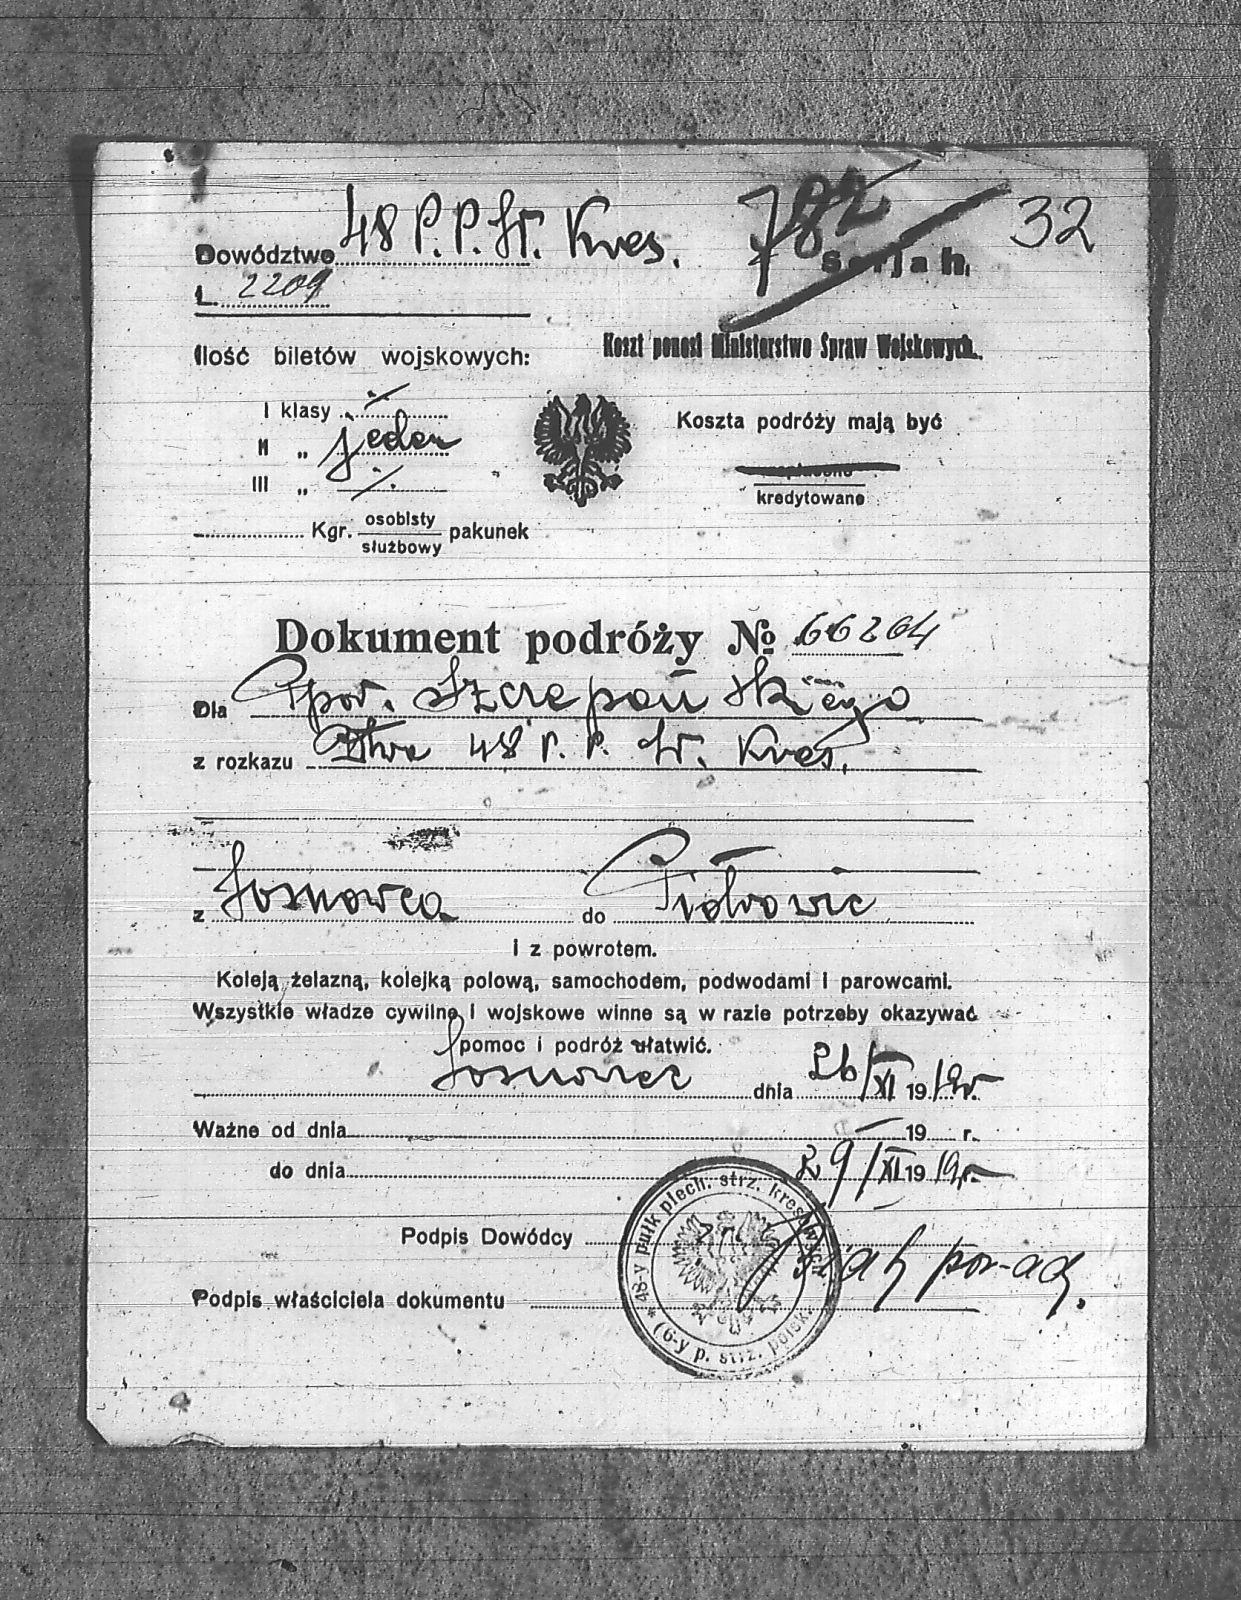 Dowództwo 48 P. P. St. Kres. 782 32
Serja h.
L 2209
Ilość biletów wojskowych:
Koszt ponosi Ministerstwo Spraw Wojskowych.
I klasy ./.
II „ jeden
III „ ./.
Koszta podróży mają być
zapłacone
kredytowane
Kgr. osobisty pakunek
służbowy
Dokument podróży № 66204
Dla Ppor. Szczepańskiego
z rozkazu Dtwa 48 P. P. St. Kres.
z Sosnowca do Piotrowic
i z powrotem.
Koleją żelazną, kolejką polową, samochodem, podwodami i parowcami.
Wszystkie władze cywilne i wojskowe winne są w razie potrzeby okazywać
pomoc i podróż ułatwić.
Sosnowiec dnia 26/XI 1919r.
Ważne od dnia — 19 r.
do dnia 29/XI 1919r.
Podpis Dowódcy
por-ad.
Podpis właściciela dokumentu
* 48-y pułk piech. strz. kresowych
(6-y p. strz. polsk.